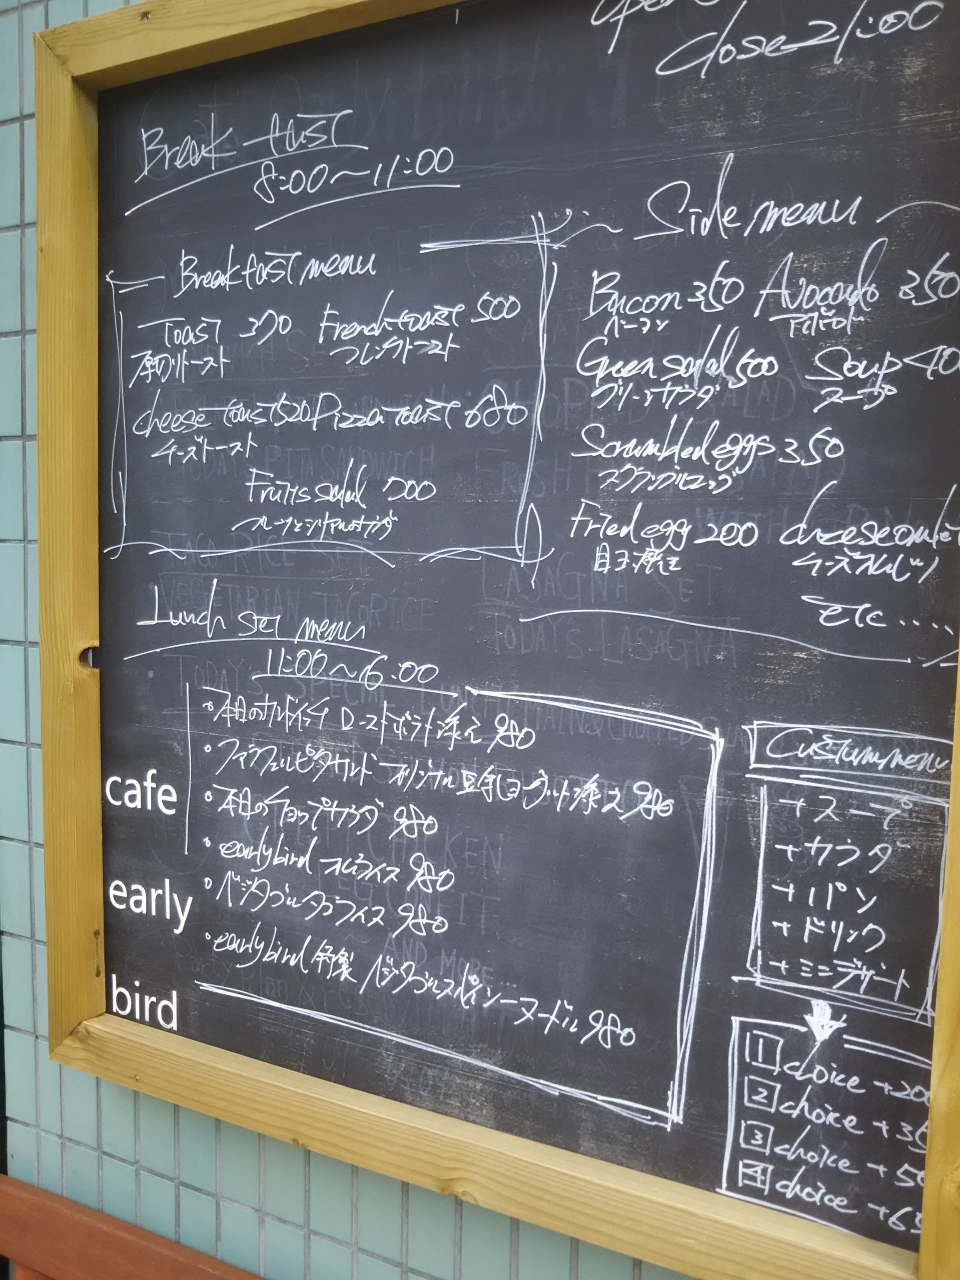 Close 21:00
Breakfast
8:00〜11:00
Breakfast menu
Toast 370 French toast 500
厚切りトースト フレンチトースト
cheese toast 520 Pizza toast 680
チーズトースト
Fruits salad 700
Side menu
Bacon 350 Avocado 350
ベーコン アボカド
Green salad 500 Soup 40
グリーンサラダ スープ
Scrambled eggs 350
スクランブルエッグ
Fried egg 200 cheese omlet
目玉焼き チーズオムレツ
etc.....
Lunch set menu
11:00〜6:00
・本日のサンドイッチ ローストポテト添え 980
・ファラフェルピタサンド オリジナル豆乳ヨーグルト添え 980
・本日のチョップサラダ 980
・earlybird オムライス 980
・ベジタブルタコライス 980
・earlybird 特製 ベジタブルスパイシーヌードル 980
Custum menu
+スープ
+サラダ
+パン
+ドリンク
+ミニデザート
1 choice +200
2 choice +35
3 choice +50
4 choice +65
cafe
early
bird